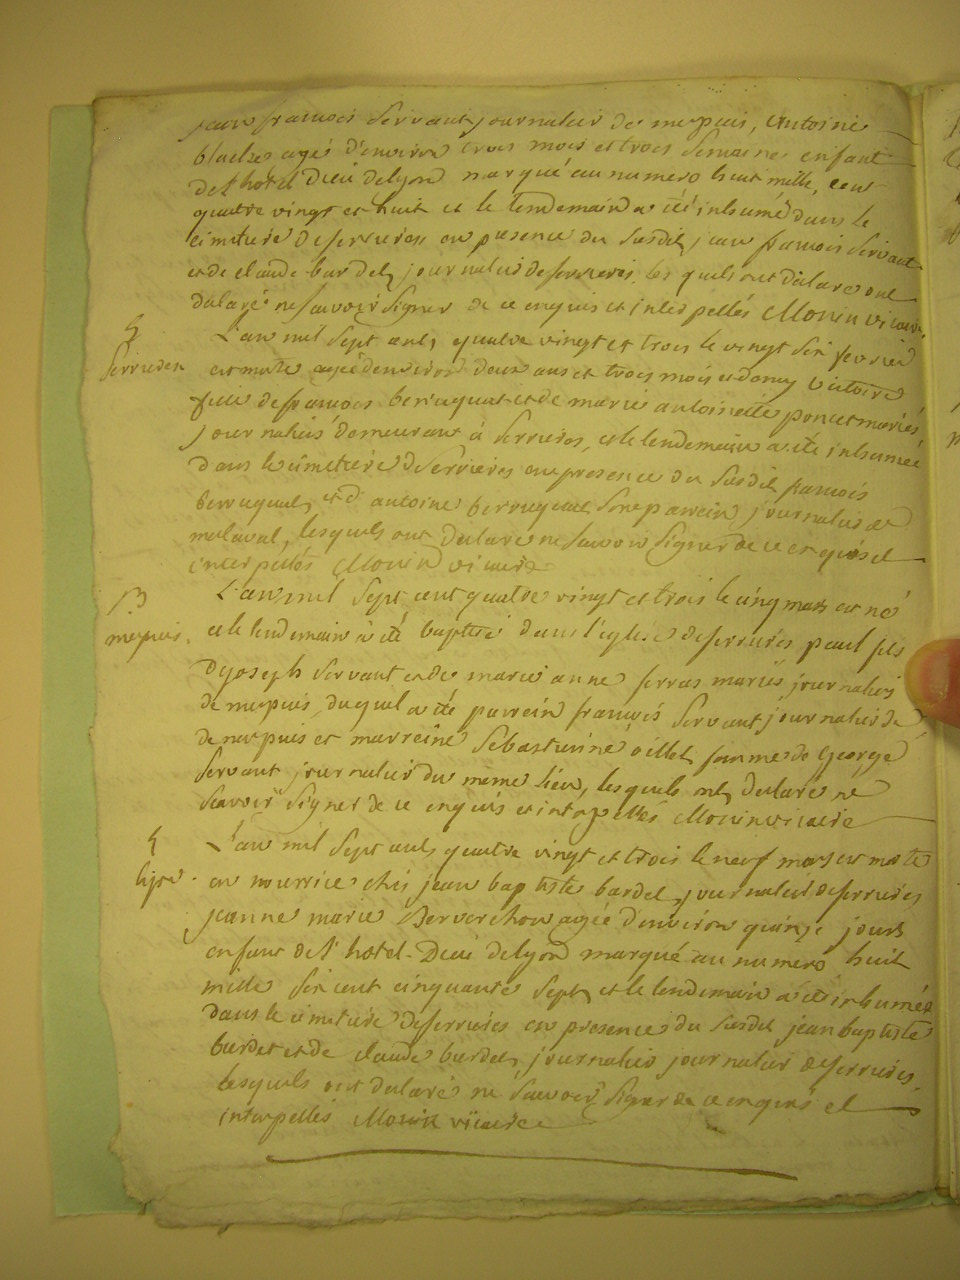 jean francois Servant journalier de mepuis, Antoine
blache agé d'environ trois mois et trois Semaines enfant
de l'hotel Dieu de lyon marqué au numero huit mille, cent
quatre vingt et huit et le lendemain a été inhumé dans le
cimitiere de serrieres en presence du Susdit jean francois Servant
et de claude bardet journalier de serrieres, les quels ont
declaré ne scavoir Signer de ce enquis et interpellés Monin vicaire
L'an mil Sept cent quatre vingt et trois le vingt Six fevrier
Serrieres est morte agée d'environ deux ans et trois mois et demy victoire
fille de francois berruquat et de marie antoinette poncet mariés,
journaliers demeurant à Serrieres, et le lendemain a été inhumée
dans le cimitiere de Serrieres en presence du Susdit francois
berruquat, et d'antoine berruquat Son parrein journalier de
malaval, lesquels ont declaré ne Savoir Signer de ce enquis et
interpellés Monin vicaire
L'an mil Sept cent quatre vingt et trois le cinq mars est né
mepuis. et le lendemain a été baptisé dans l'eglise de serrieres paul fils
de joseph Servant et de marie anne serras mariés journaliers
de mepuis, duquel a été parrein francois Servant journalier de
de mepuis et marreine Sebastienne oillet femme de George
Servant journalier du meme lieu, lesquels ont declaré ne
Scavoir Signer de ce enquis et interpellés Monin vicaire
L'an mil Sept cent quatre vingt et trois le neuf mars est morte
en nourrice chés jean baptiste bardet, journalier de serrieres
jeanne marie agée d'environ quinze jours
enfant de l'hotel-Dieu de lyon marqué au numero huit
mille Six cent cinquante Sept, et le lendemain a été inhumée
dans le cimitiere de serrieres en presence du Susdit jean baptiste
bardet et de claude bardet, journalier journalier de serrieres,
lesquels ont declaré ne Scavoir Signer de ce enquis et
interpellés Monin vicaire